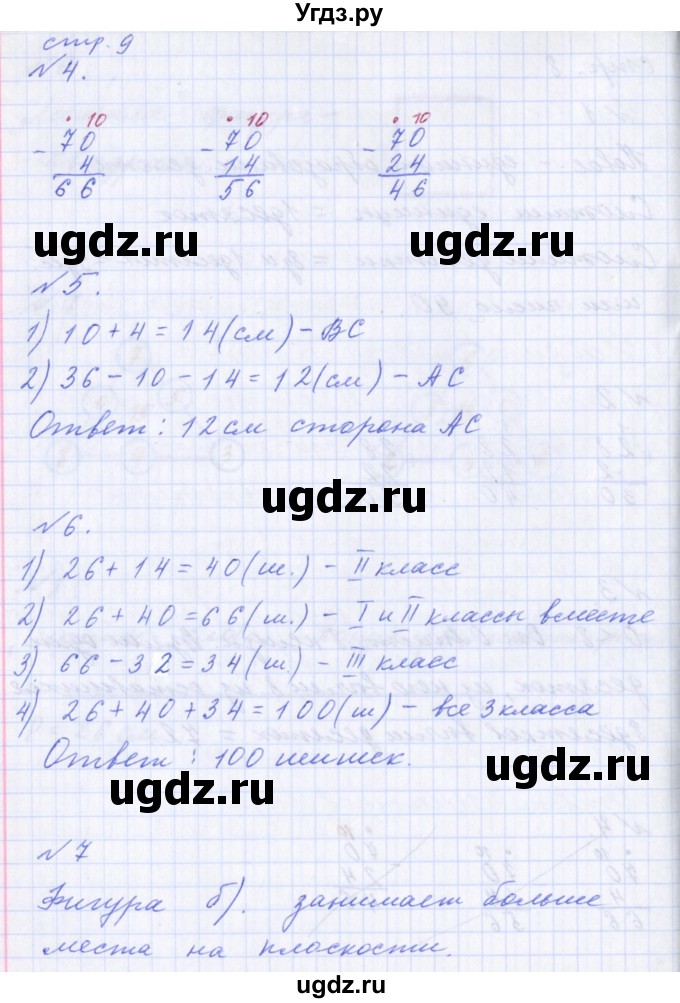 Угдз.ру
стр. 9
№4.
• 10 • 10 • 10
- 70 - 70 - 70
4 14 24
66 56 46
ugdz.ru ugdz.ru ugdz.ru
№5.
1) 10 + 4 = 14 (см) - ВС
2) 36 - 10 - 14 = 12 (см) - АС
Ответ: 12 см сторона АС
ugdz.ru
№6.
1) 26 + 14 = 40 (ш.) - II класс
2) 26 + 40 = 66 (ш.) - I и II классы вместе
3) 66 - 32 = 34 (ш) - III класс
4) 26 + 40 + 34 = 100 (ш) - все 3 класса
Ответ: 100 шишек.
ugdz.ru ugdz.ru
№7
Фигура б). занимает больше
места на плоскости.
ugdz.ru